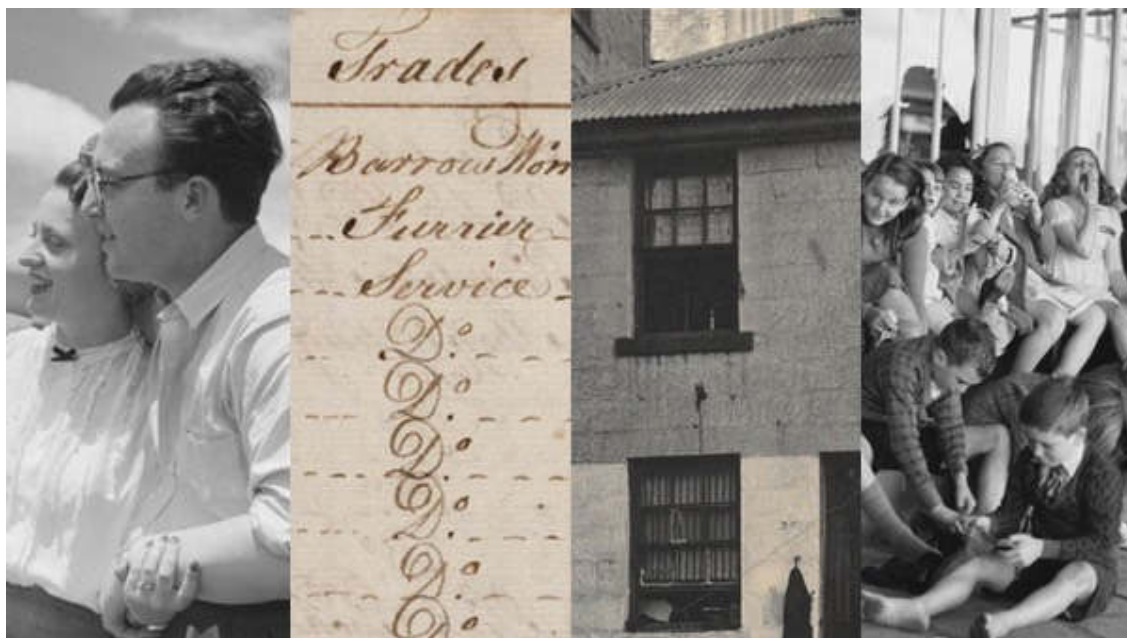 Trades
Barrow Wom
Furrier
Service
D.º
D.º
D.º
D.º
D.º
D.º